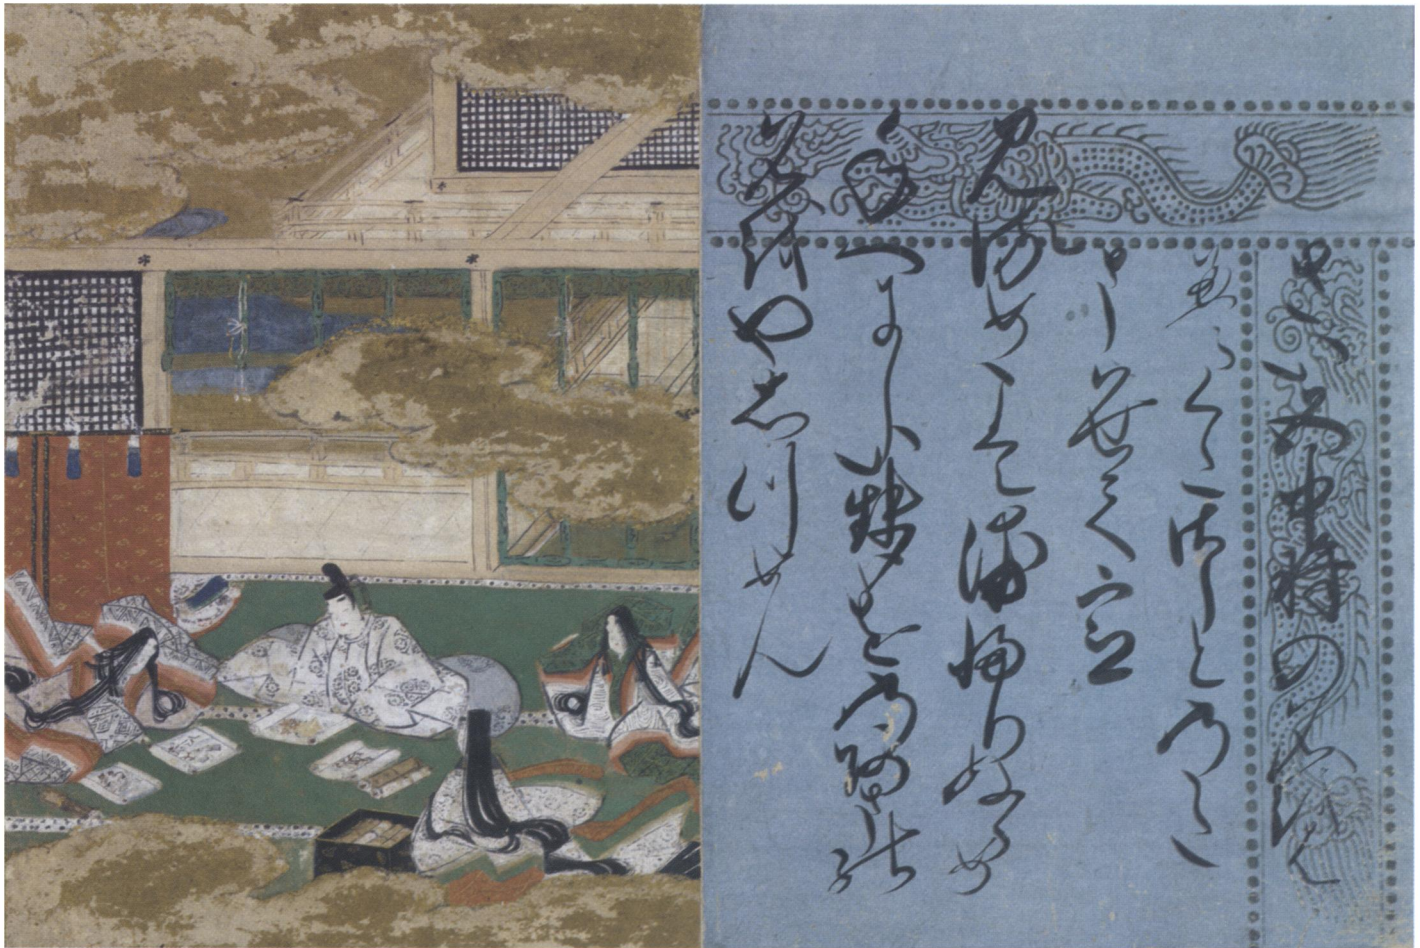 さい五中将のなをは
えくたさしとのた
まはせて宮
見るめこそ浦ふりぬらめ
年へにしい勢をのあまの
なをやしつめん